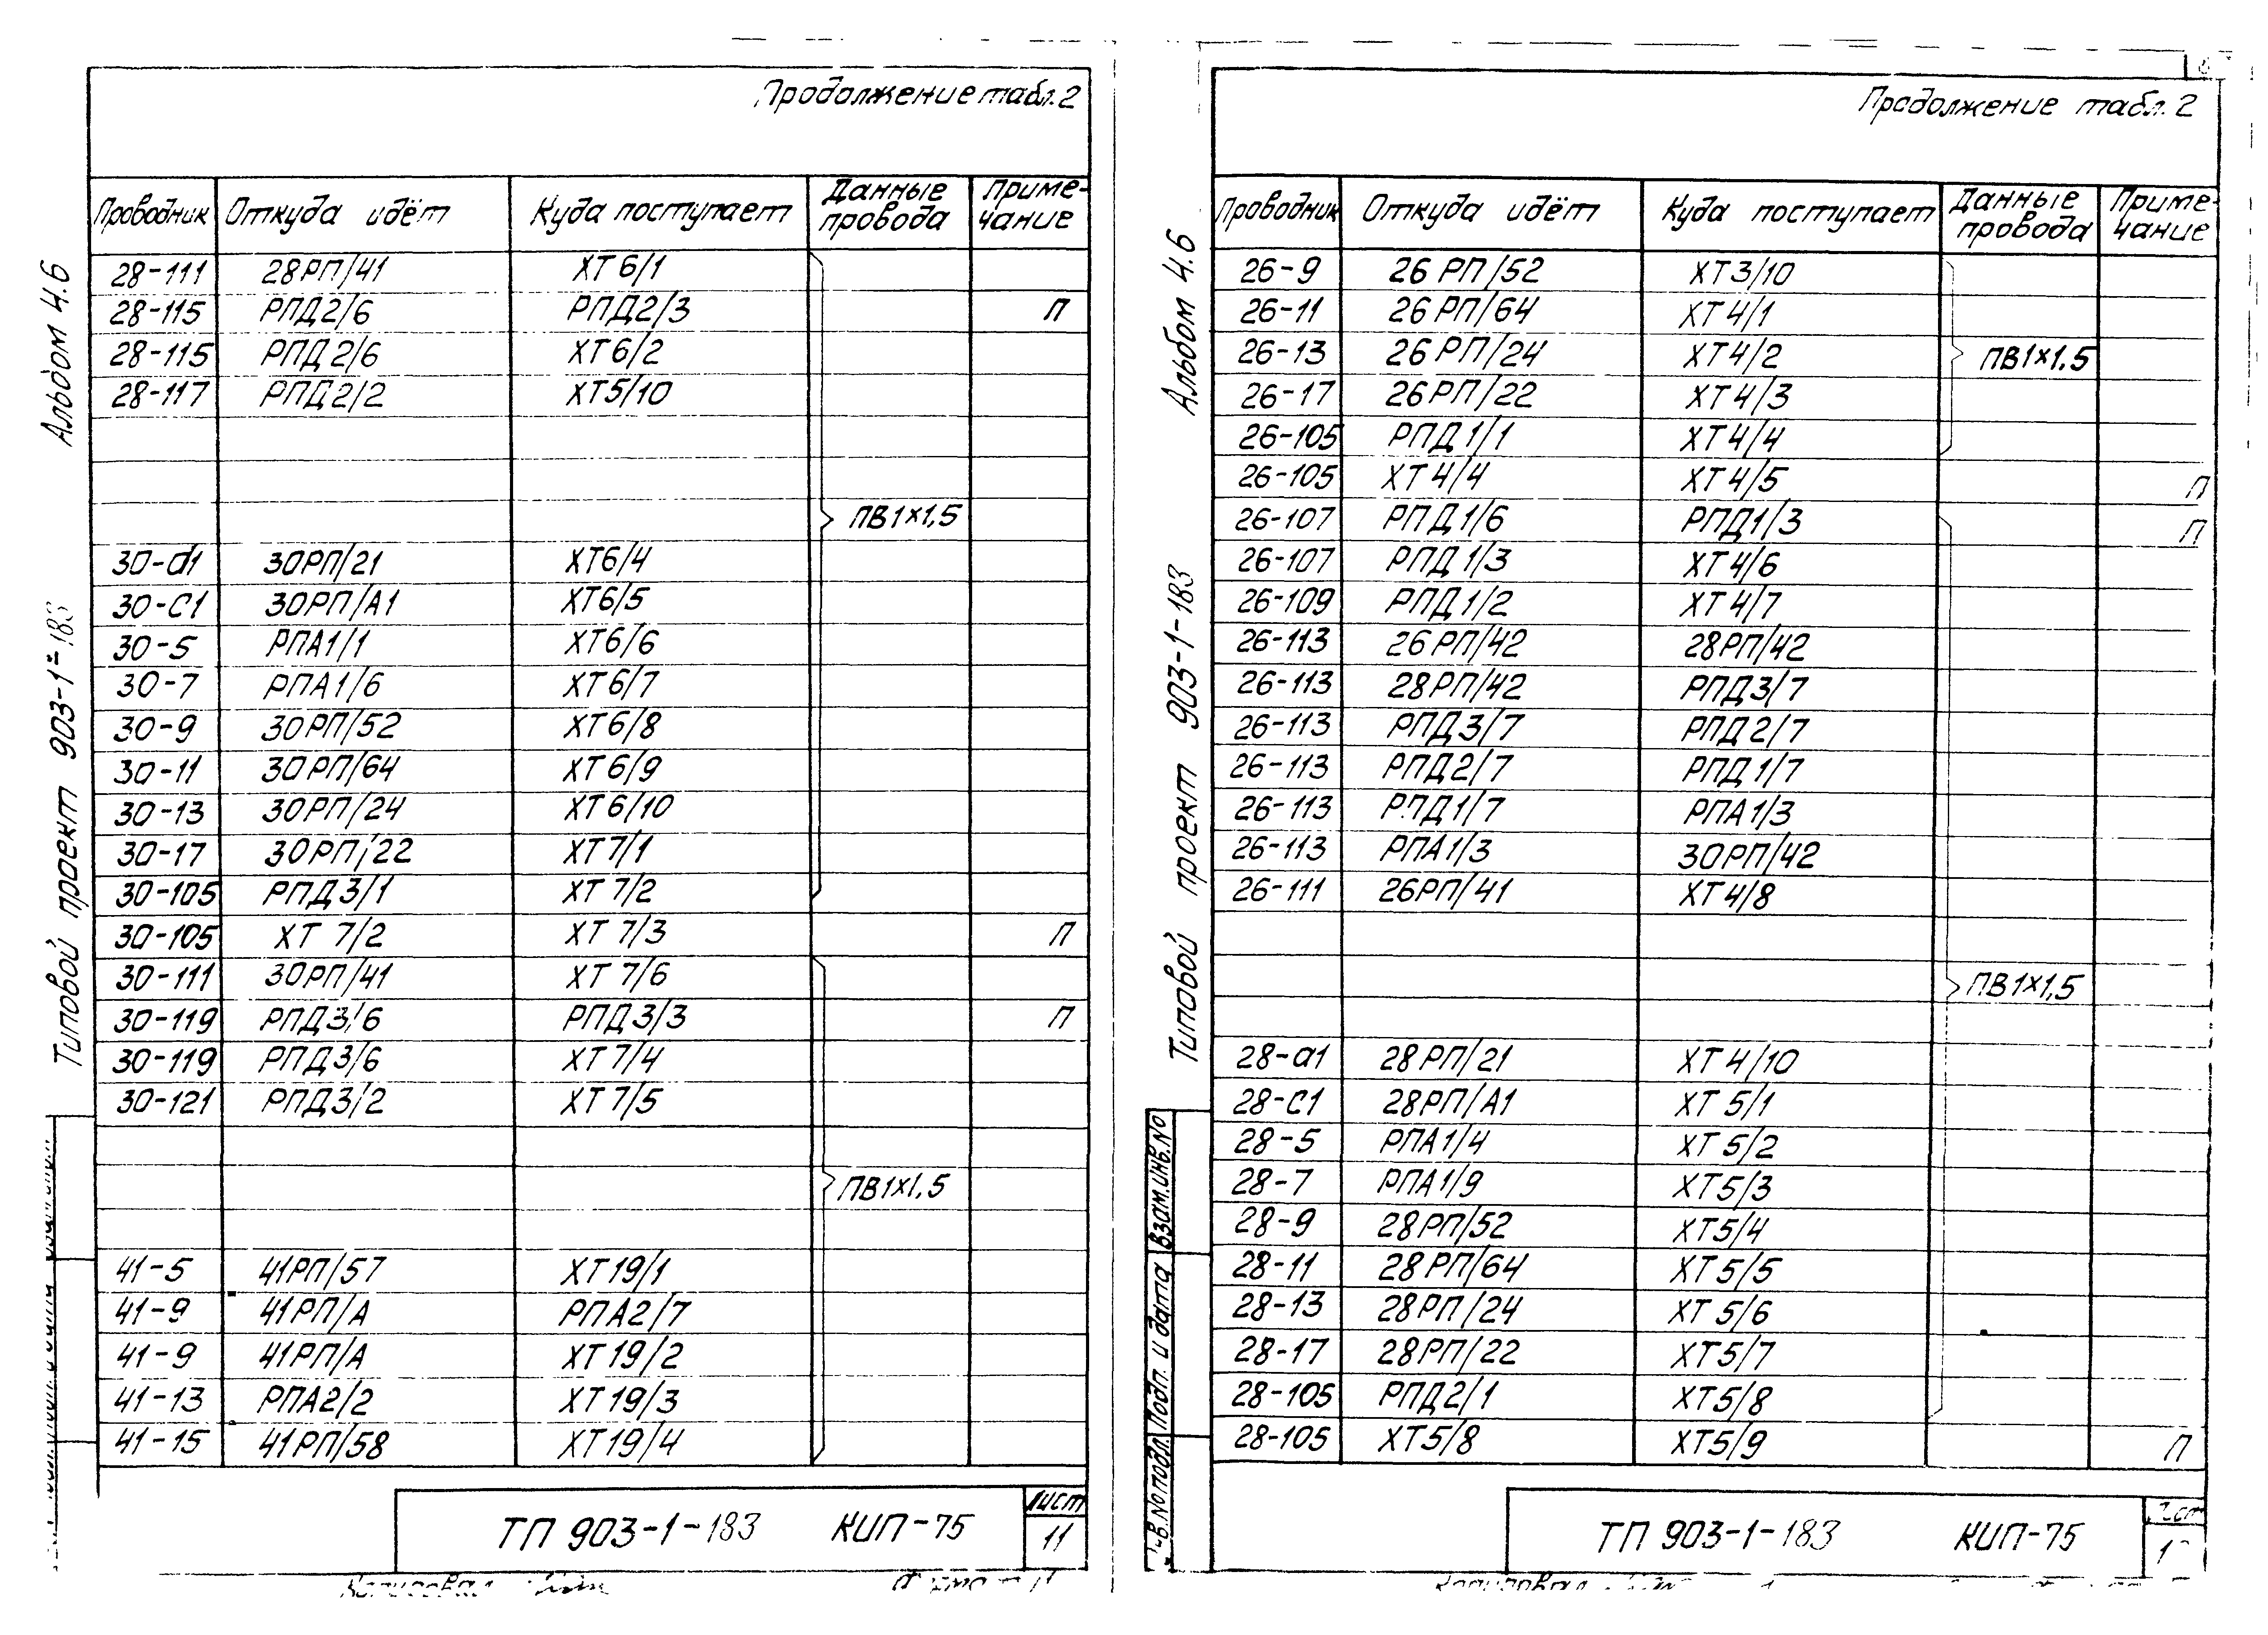 Продолжение табл.2
Проводник Откуда идёт Куда поступает Данные провода Приме-чание
28-111 28РП/41 ХТ6/1
28-115 РПД2/6 РПД2/3 П
28-115 РПД2/6 ХТ6/2
28-117 РПД2/2 ХТ5/10
ПВ1×1,5
30-а1 30РП/21 ХТ6/4
30-С1 30РП/А1 ХТ6/5
30-5 РПА1/1 ХТ6/6
30-7 РПА1/6 ХТ6/7
30-9 30РП/52 ХТ6/8
30-11 30РП/64 ХТ6/9
30-13 30РП/24 ХТ6/10
30-17 30РП/22 ХТ7/1
30-105 РПД3/1 ХТ7/2
30-105 ХТ 7/2 ХТ 7/3 П
30-111 30РП/41 ХТ 7/6
30-119 РПД3/6 РПД3/3 П
30-119 РПД3/6 ХТ7/4
30-121 РПД3/2 ХТ7/5
ПВ1×1,5
41-5 41РП/57 ХТ19/1
41-9 41РП/А РПА2/7
41-9 41РП/А ХТ19/2
41-13 РПА2/2 ХТ19/3
41-15 41РП/58 ХТ19/4
Альбом 4.6
Типовой проект 903-1-183
ТП 903-1-183 КИП-75
Лист
11
Копировал
Продолжение табл.2
Проводник Откуда идёт Куда поступает Данные провода Приме-чание
26-9 26РП/52 ХТ3/10
26-11 26РП/64 ХТ4/1
26-13 26РП/24 ХТ4/2 ПВ1×1,5
26-17 26РП/22 ХТ4/3
26-105 РПД1/1 ХТ4/4
26-105 ХТ4/4 ХТ4/5 П
26-107 РПД1/6 РПД1/3 П
26-107 РПД1/3 ХТ4/6
26-109 РПД1/2 ХТ4/7
26-113 26РП/42 28РП/42
26-113 28РП/42 РПД3/7
26-113 РПД3/7 РПД2/7
26-113 РПД2/7 РПД1/7
26-113 РПД1/7 РПА1/3
26-113 РПА1/3 30РП/42
26-111 26РП/41 ХТ4/8
ПВ1×1,5
28-а1 28РП/21 ХТ4/10
28-С1 28РП/А1 ХТ5/1
28-5 РПА1/4 ХТ5/2
28-7 РПА1/9 ХТ5/3
28-9 28РП/52 ХТ5/4
28-11 28РП/64 ХТ5/5
28-13 28РП/24 ХТ5/6
28-17 28РП/22 ХТ5/7
28-105 РПД2/1 ХТ5/8
28-105 ХТ5/8 ХТ5/9 П
Альбом 4.6
Типовой проект 903-1-183
Взам.инв.№
Подп. и дата
№подл.
ТП 903-1-183 КИП-75
Копировал